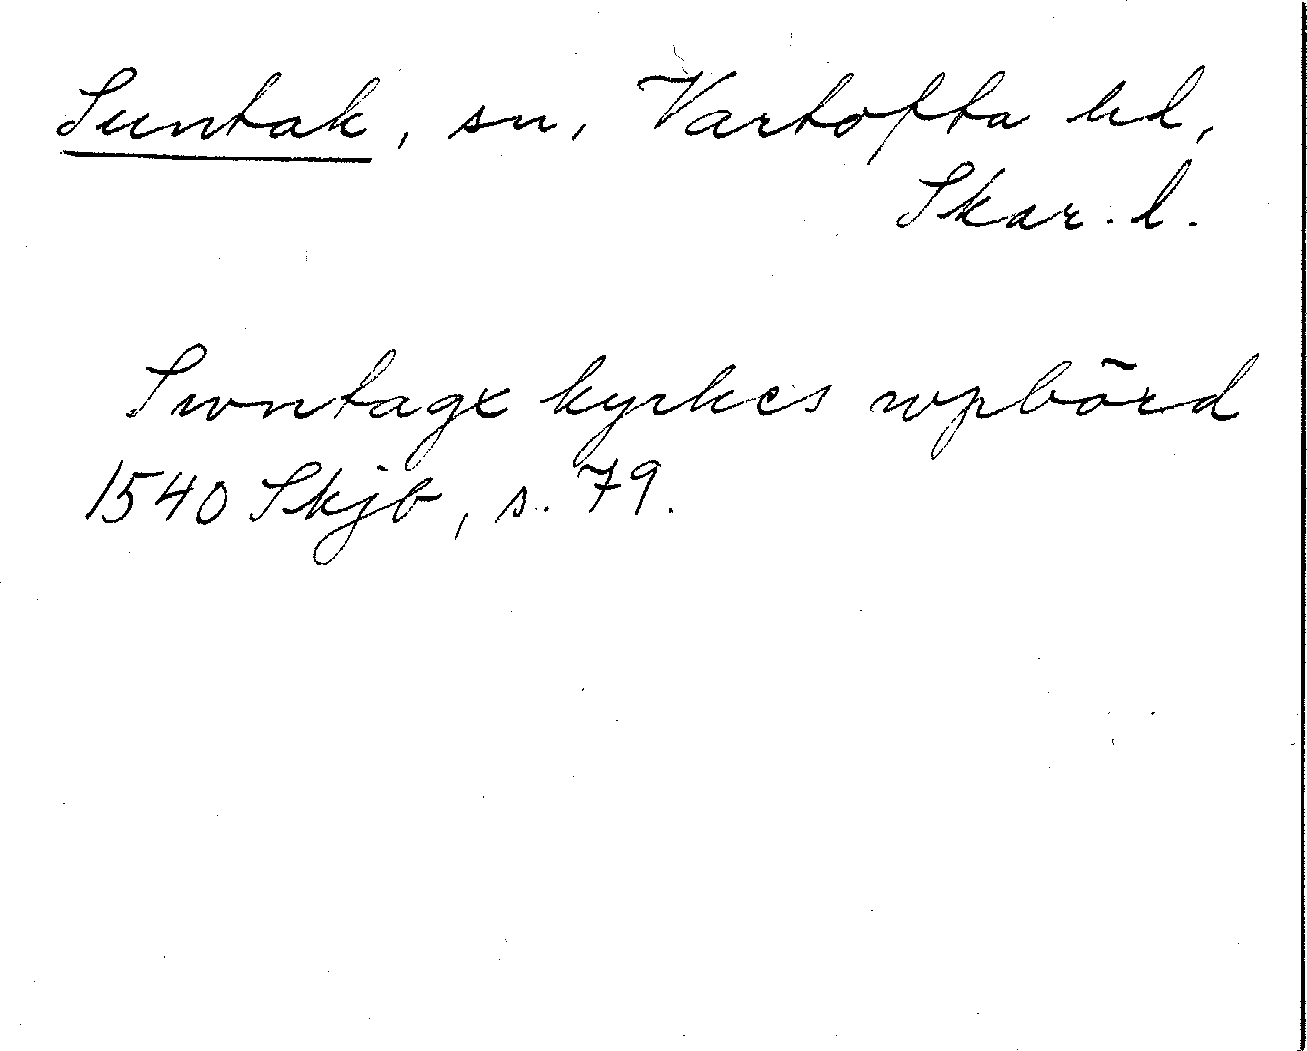 Suntak, sn, Vartofta hd,
Skar. l.
Swntage kyrkes wpbörd
1540 Skjb, s. 79.